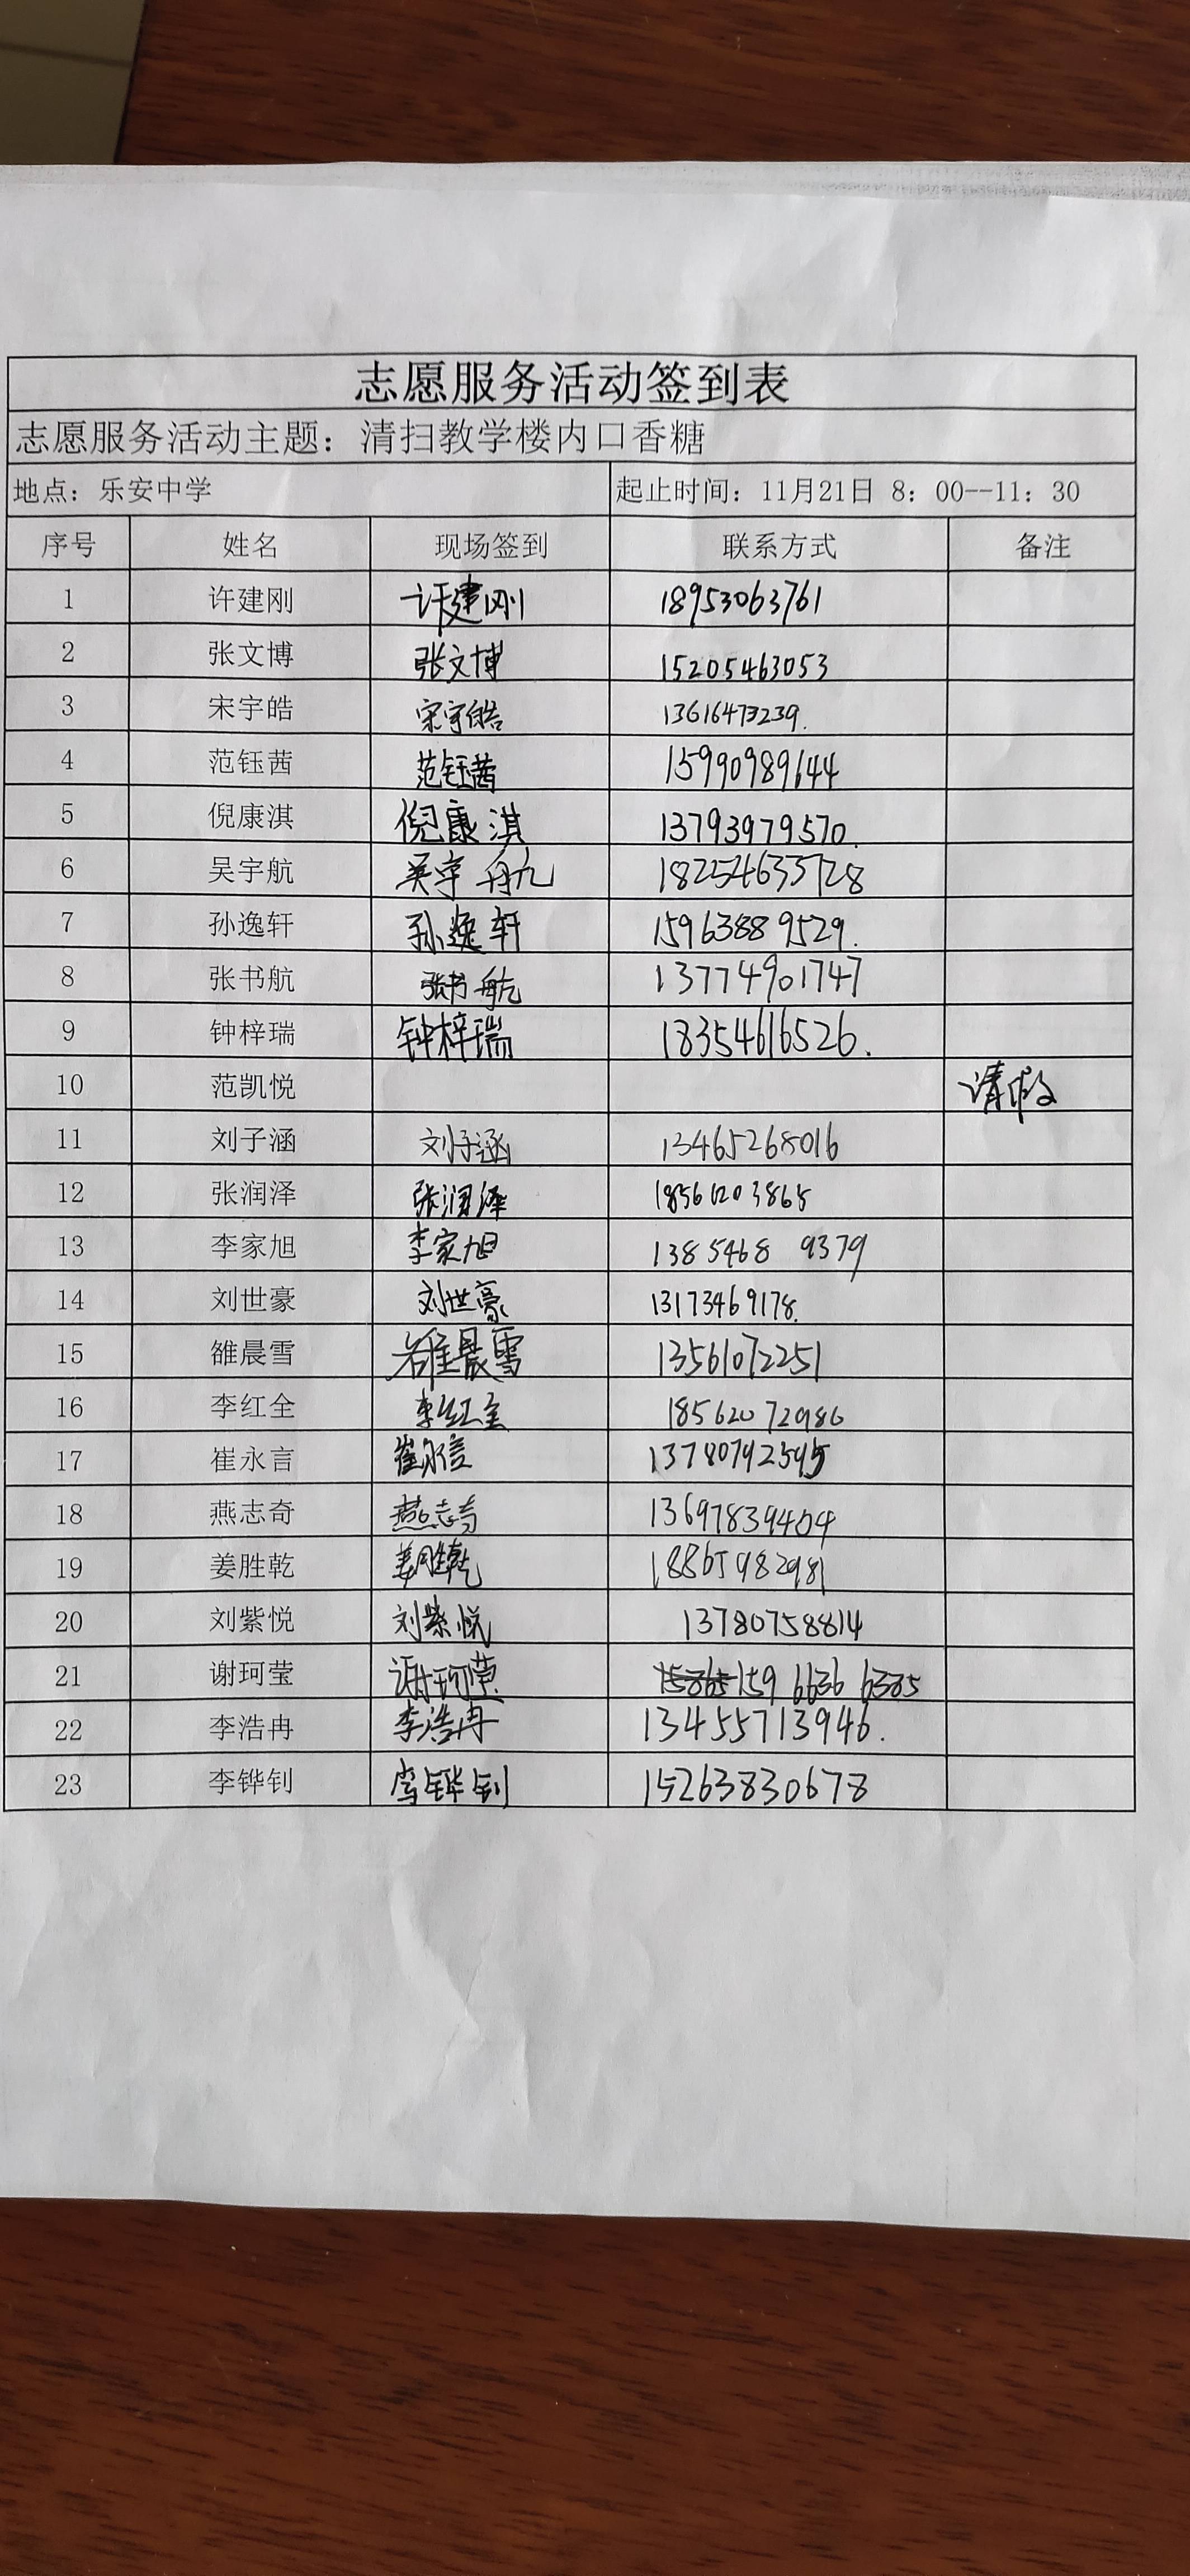 志愿服务活动签到表
志愿服务活动主题：清扫教学楼内口香糖
地点：乐安中学 起止时间：11月21日 8：00--11：30
序号 姓名 现场签到 联系方式 备注
1 许建刚 许建刚 18953063761
2 张文博 张文博 15205463053
3 宋宇皓 宋宇皓 13616473239.
4 范钰茜 范钰茜 15990989644
5 倪康淇 倪康淇 13793979570.
6 吴宇航 吴宇航 18254633728
7 孙逸轩 孙逸轩 15963889529.
8 张书航 张书航 13774901747
9 钟梓瑞 钟梓瑞 18354616526.
10 范凯悦 请假
11 刘子涵 刘子涵 13465268016
12 张润泽 张润泽 18561203865
13 李家旭 李家旭 1385468 9379
14 刘世豪 刘世豪 13173469178.
15 雒晨雪 雒晨雪 13561072251
16 李红全 李红全 18562072986
17 崔永言 崔永言
18 燕志奇 燕志奇 13697839404
19 姜胜乾 姜胜乾 18865982981
20 刘紫悦 刘紫悦 13780758814
21 谢珂莹 谢珂莹 159 6636 6385
22 李浩冉 李浩冉 13455713946.
23 李铧钊 李铧钊 15263830678